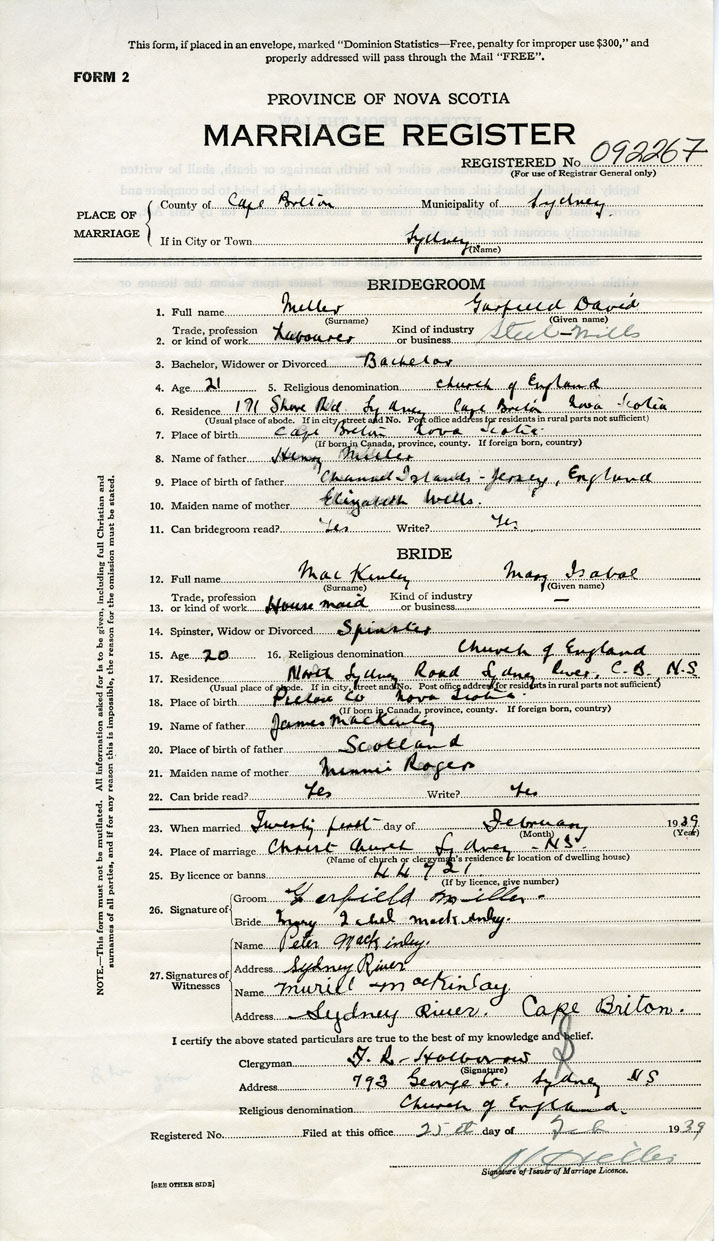 This form, if placed in an envelope, marked "Dominion Statistics—Free, penalty for improper use $300," and
properly addressed will pass through the Mail "FREE".
FORM 2
PROVINCE OF NOVA SCOTIA
MARRIAGE REGISTER
REGISTERED No. 092267
(For use of Registrar General only)
PLACE OF MARRIAGE
County of Cape Breton Municipality of Sydney
If in City or Town Sydney
(Name)
BRIDEGROOM
1. Full name Miller Garfield David
(Surname) (Given name)
2. Trade, profession or kind of work Labourer Kind of industry or business Steel-Mills
3. Bachelor, Widower or Divorced Bachelor
4. Age 21 5. Religious denomination Church of England
6. Residence 171 Shore Rd. Sydney Cape Breton Nova Scotia
(Usual place of abode. If in city, street and No. Post office address for residents in rural parts not sufficient)
7. Place of birth Cape Breton Nova Scotia
(If born in Canada, province, county. If foreign born, country)
8. Name of father Henry Miller
9. Place of birth of father Channel Islands - Jersey, England
10. Maiden name of mother Elizabeth Wells.
11. Can bridegroom read? Yes Write? Yes
BRIDE
12. Full name MacKinley Mary Isabel
(Surname) (Given name)
13. Trade, profession or kind of work House maid Kind of industry or business —
14. Spinster, Widow or Divorced Spinster
15. Age 20 16. Religious denomination Church of England
17. Residence North Sydney Road Sydney River, C.B., N.S
(Usual place of abode. If in city, street and No. Post office address for residents in rural parts not sufficient)
18. Place of birth Pictou Co Nova Scotia
(If born in Canada, province, county. If foreign born, country)
19. Name of father James MacKinley
20. Place of birth of father Scotland
21. Maiden name of mother Minnie Rogers
22. Can bride read? Yes Write? Yes
23. When married Twenty first day of February 1939
(Month) (Year)
24. Place of marriage Christ Church Sydney - NS.
(Name of church or clergyman's residence or location of dwelling house)
25. By licence or banns 44921
(If by licence, give number)
26. Signature of
Groom Garfield Miller.
Bride Mary Isabel MacKinley.
27. Signatures of Witnesses
Name Peter MacKinley.
Address Sydney River
Name Muriel MacKinlay
Address Sydney River. Cape Briton.
I certify the above stated particulars are true to the best of my knowledge and belief.
Clergyman
(Signature)
Address 793 George St. Sydney NS
Religious denomination Church of England.
Registered No. Filed at this office 25th day of Feb 1939
Signature of Issuer of Marriage Licence.
[SEE OTHER SIDE]
NOTE.—This form must not be mutilated. All information asked for is to be given, including full Christian and
surnames of all parties, and if for any reason this is impossible, the reason for the omission must be stated.